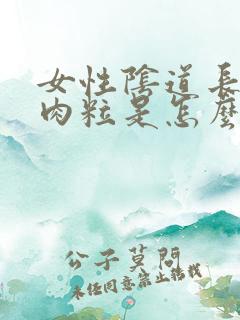 女性陰道長
肉粒是怎麼
公子莫問
未経同意禁止轉載